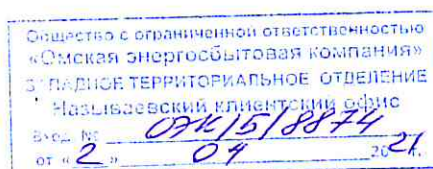 Общество с ограниченной ответственностью
«Омская энергосбытовая компания»
ЗАПАДНОЕ ТЕРРИТОРИАЛЬНОЕ ОТДЕЛЕНИЕ
Называевский клиентский офис
Вход. № ОЭК/5/8874
от «2» 04 2021 г.